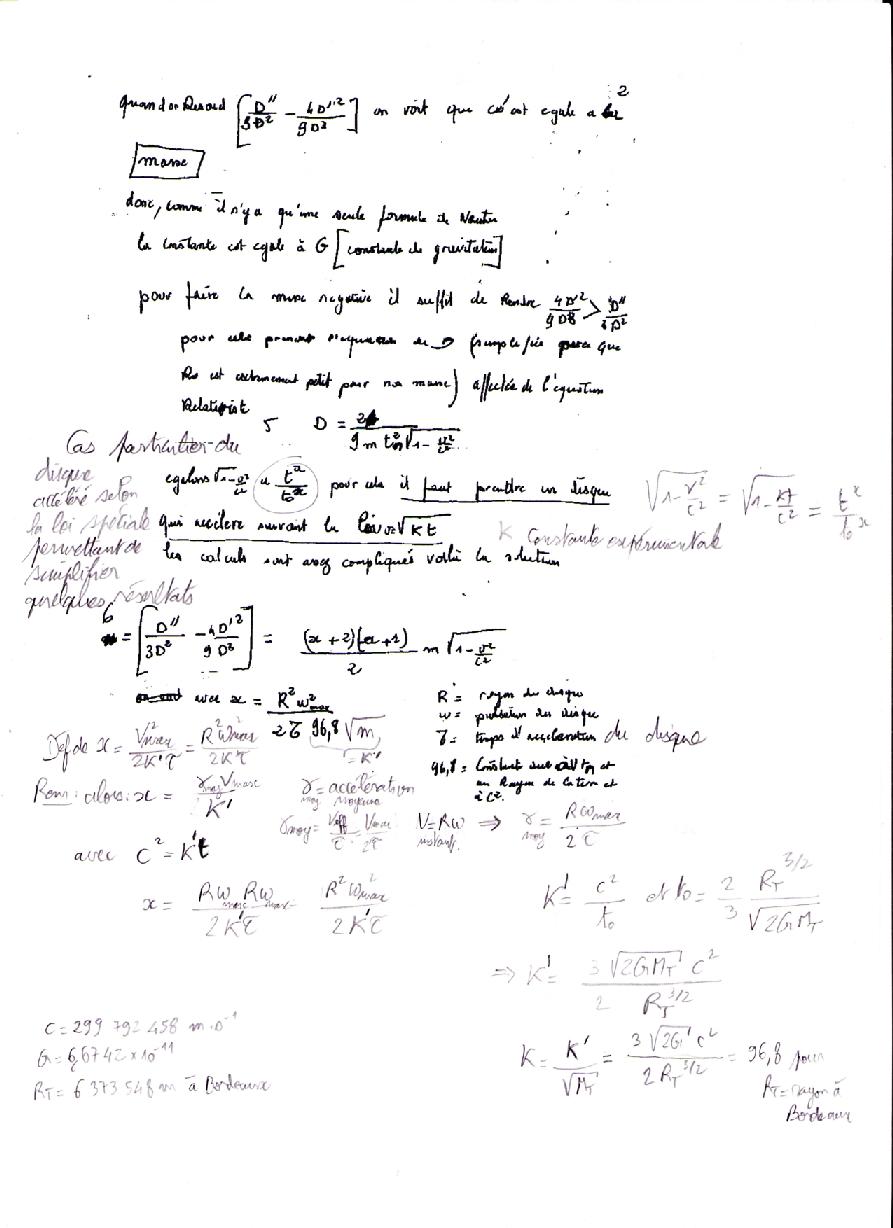 2
quand on Resoud [D''/3D² − 4D'²/9D³] on voit que est egale a
masse
donc, comme il n'y a qu'une seule formule de Newton
la constante est egale à G [constante de gravitation]
pour faire la masse negative il suffit de Rendre 4D'²/9D³ > D''/3D²
pour cela prenant l'equation de (simplifiée parce que
Ro est extremement petit pour nos masse) affectée de l'equation
Relativist
5 D = 2/9m t²√1−v²/c²
Cas particulier du
disque
accéléré selon
la loi spéciale
permettant de
simplifier
quelques résultats
egalons √1−v²/c² a t^x/to^x pour cela il faut prendre un disque
√1−v²/c² = √1−Kt/c² = t^x/to^x
qui accelere suivant la loi v=√Kt
K Constante expérimentale
les calculs sont assez compliqués voilà la solution
6
= [D''/3D² − 4D'²/9D³] = (x+2)(x+1)/2 m √1−v²/c²
avec x = R²ω²max/2τ 96,8 √m
= K'
R = rayon du disque
ω = pulsation du disque
τ = temps d'acceleration du disque
96,8 = Constante
un Rayon de la terre et
à C².
Def de x = V²max/2K'τ = R²ω²max/2K'τ
Rem: alors: x = γmoy Vmax/K'
γmoy = accélération moyenne
γmoy = Veff/τ = Vmax/2τ V instant. = Rω ⇒ γmoy = Rωmax/2τ
avec C² = K't
x = Rωmax Rωmax/2K'τ R²ω²max/2K'τ
K' = c²/to et to = 2/3 R_T^3/2/√2GM_T
⇒ K' = 3√2GM_T c²/2 R_T^3/2
C = 299 792 458 m.s⁻¹
G = 6,6742 × 10⁻¹¹
R_T = 6 373 548 m à Bordeaux
K = K'/√M_T = 3√2G c²/2 R_T^3/2 = 96,8 pour
R_T = rayon à
Bordeaux